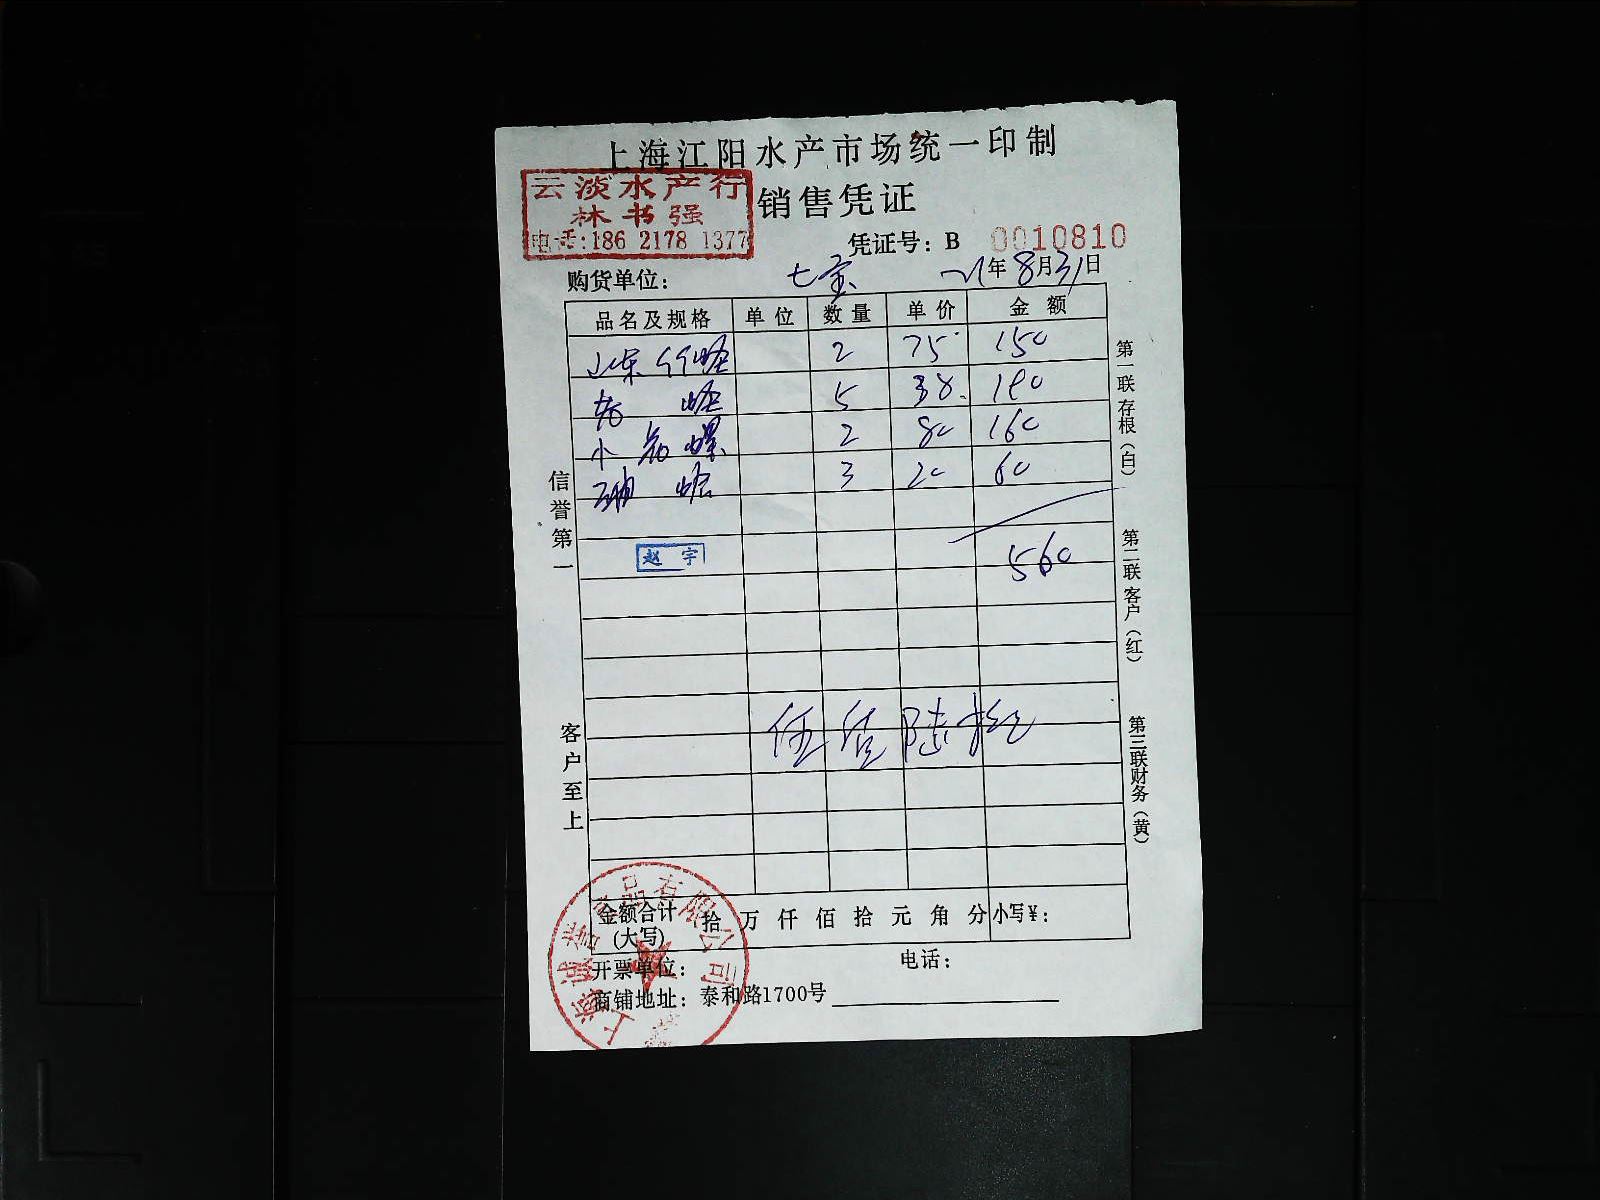 上海江阳水产市场统一印制
云淡水产行
林书强
电话:186 2178 1377
销售凭证
凭证号：B 0010810
购货单位： 七宝 21年8月31日
品名及规格 单位 数量 单价 金额
山东竹蛏 2 75 150
蛏 5 38 190
小 螺 2 80 160
蛤 3 20 60
560
赵宇
伍佰陆拾
信誉第一
客户至上
第一联存根（白）
第二联客户（红）
第三联财务（黄）
金额合计（大写） 拾万仟佰拾元角分 小写¥：
开票单位： 电话：
商铺地址：泰和路1700号
上海诚誉 品有限公司